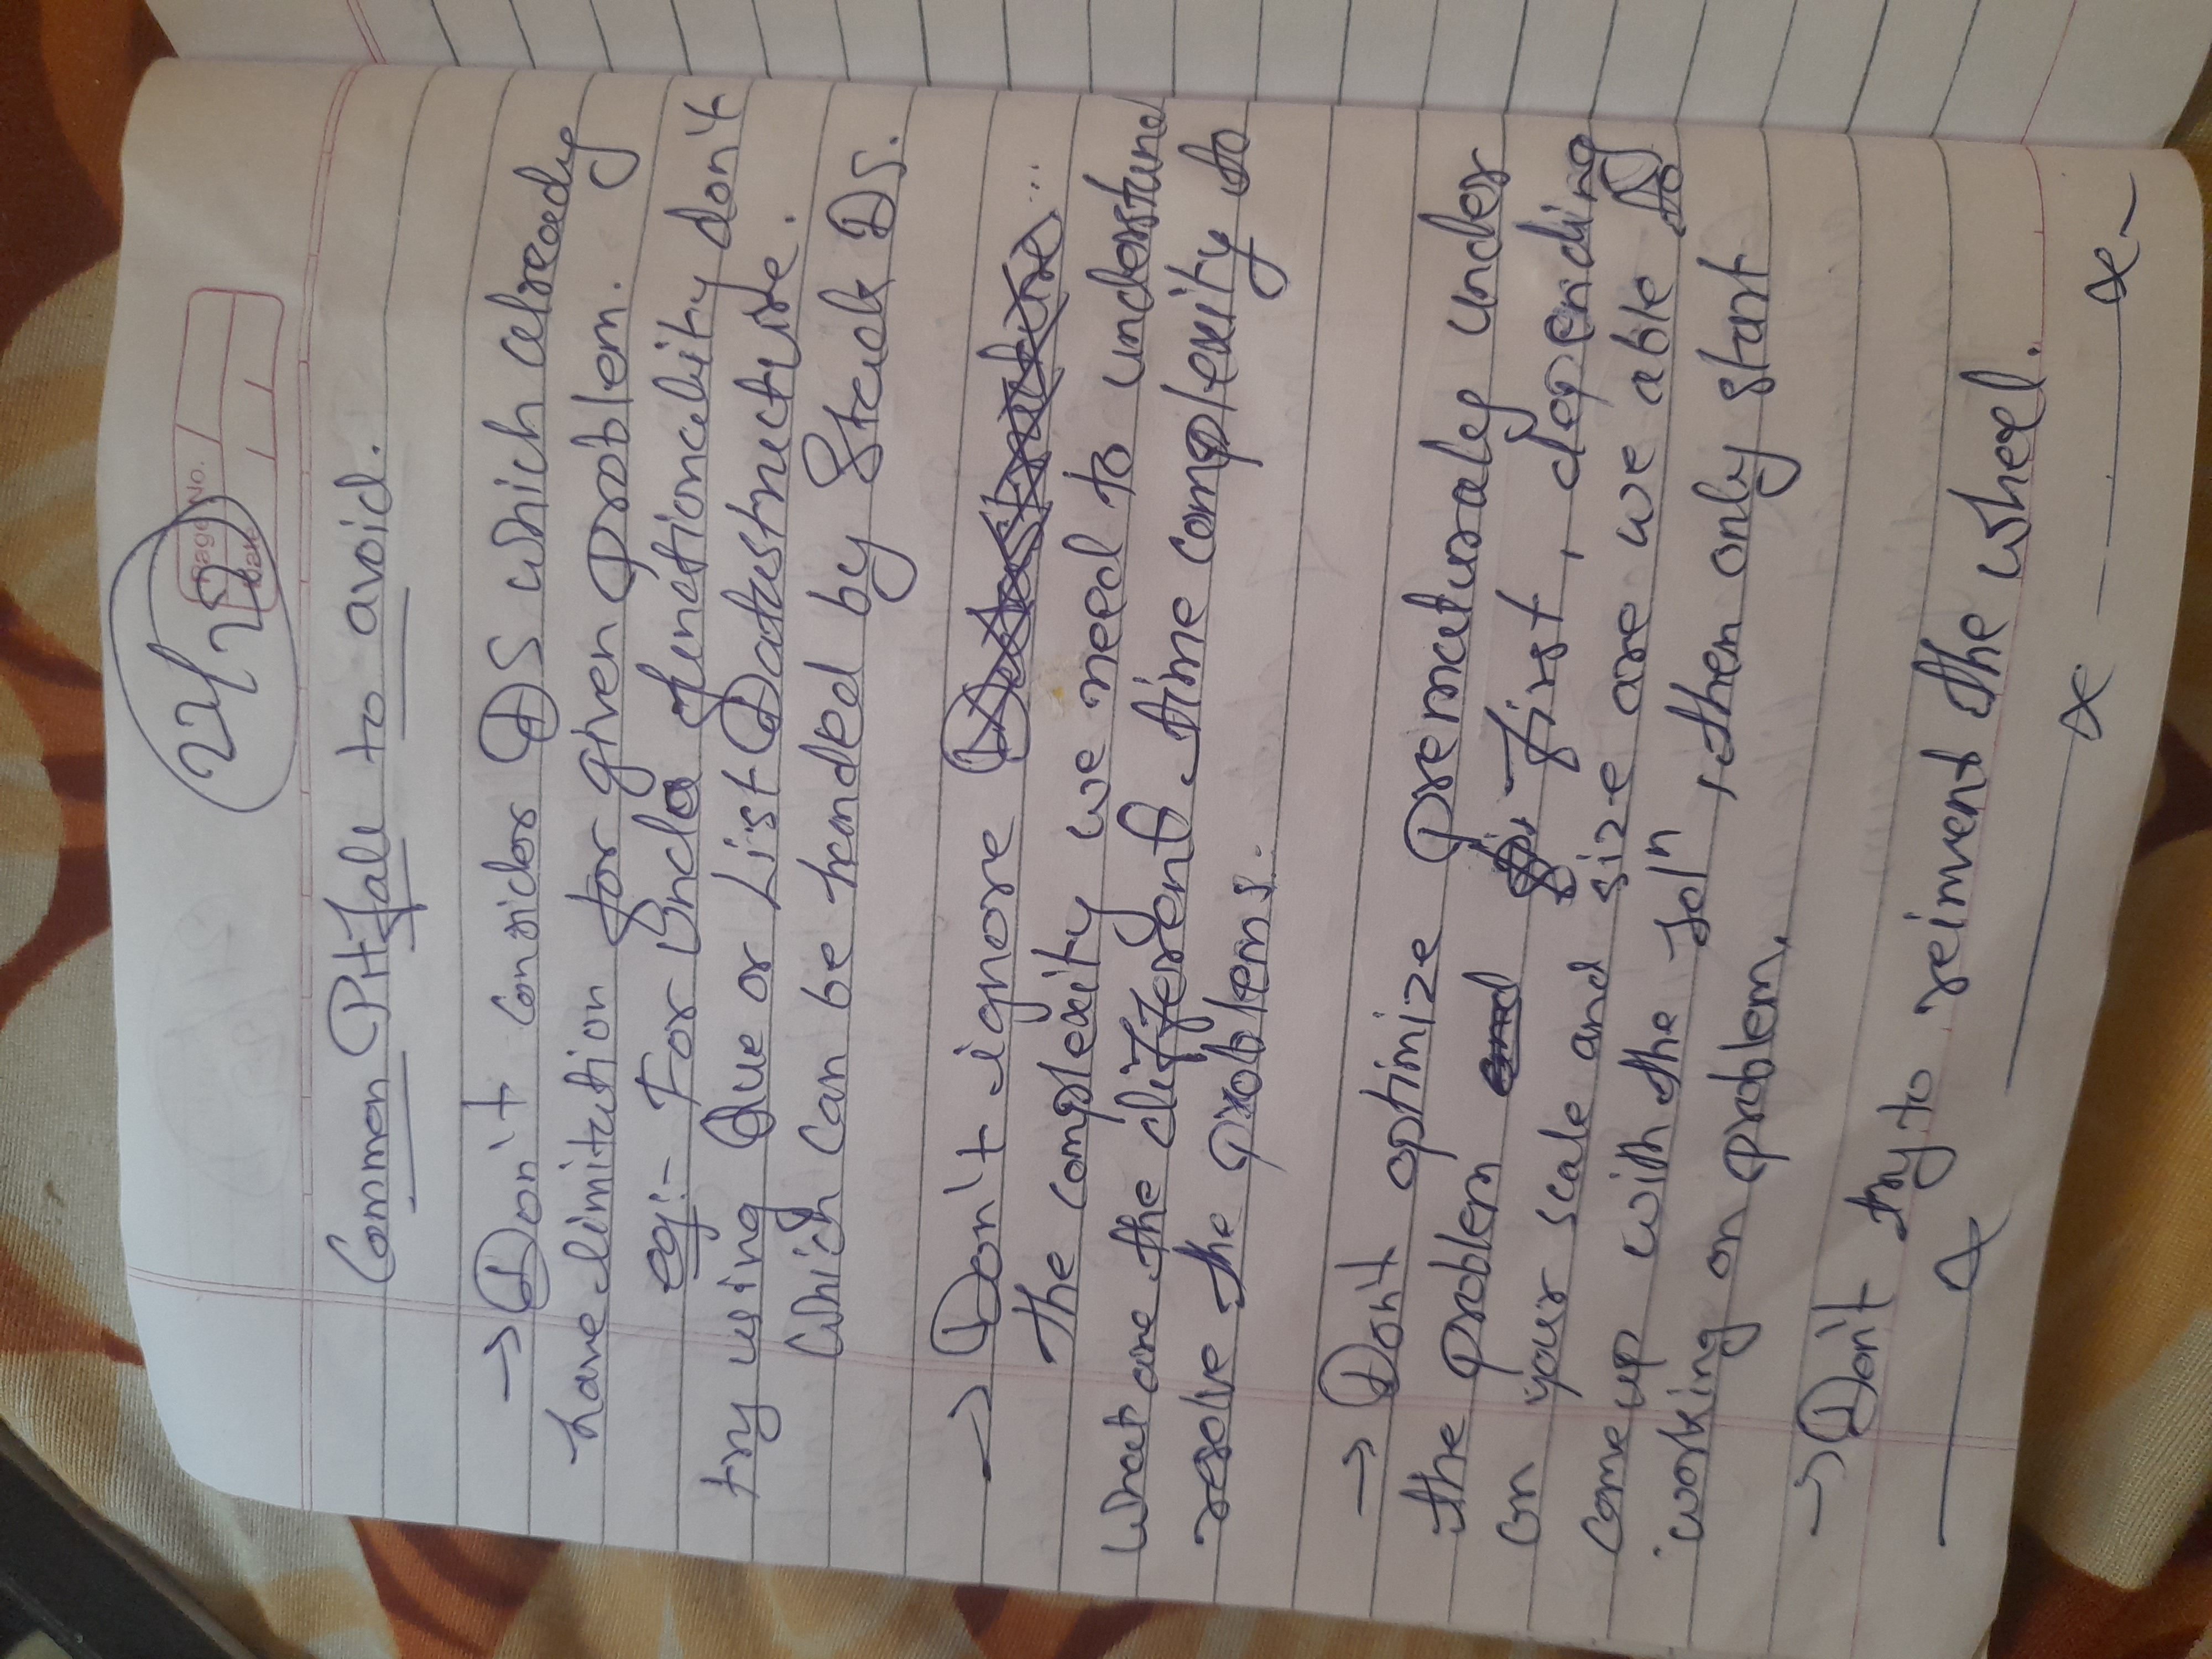 Page No.
Date / /
Common Pitfale to avoid.
→ Don't consider DS which already
have limitation for given problem.
eg:- For Undo functionality don't
try using Que or List Datastructure.
Which can be handled by Stack DS.
→ Don't ignore ...
the complexity we need to understand
what are the different time complexity to
resolve the problems.
→ Dont optimize prematuraly under
the problem first, depending
on your scale and size are we able to
come up with the solⁿ, then only start
working on problem.
→ Don't try to reinvent the wheel.